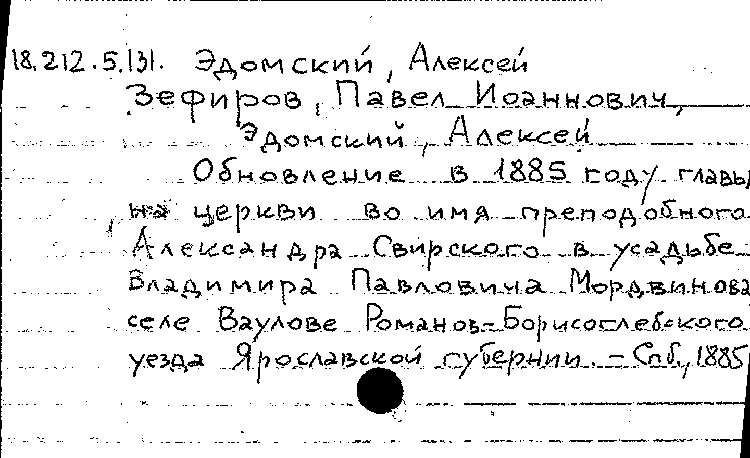 18.212.5.131. Эдомский, Алексей
Зефиров, Павел Иоаннович,
Эдомский, Алексей
Обновление в 1885 году главы
на церкви во имя преподобного
Александра Свирского в усадьбе
Владимира Павловича Мордвинова
селе Ваулове Романов-Борисоглебского
уезда Ярославской губернии. - Спб., 1885